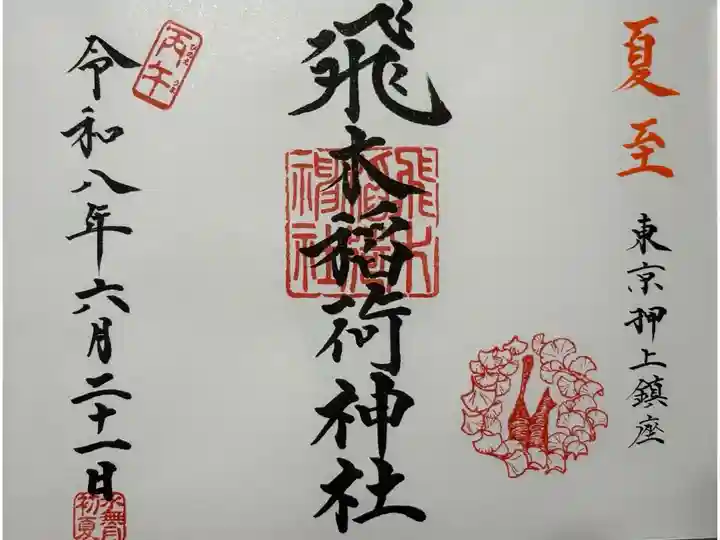 夏至
東京押上鎮座
飛木稲荷神社
飛木稲荷神社
丙午
ひのえ うま
令和八年六月二十一日